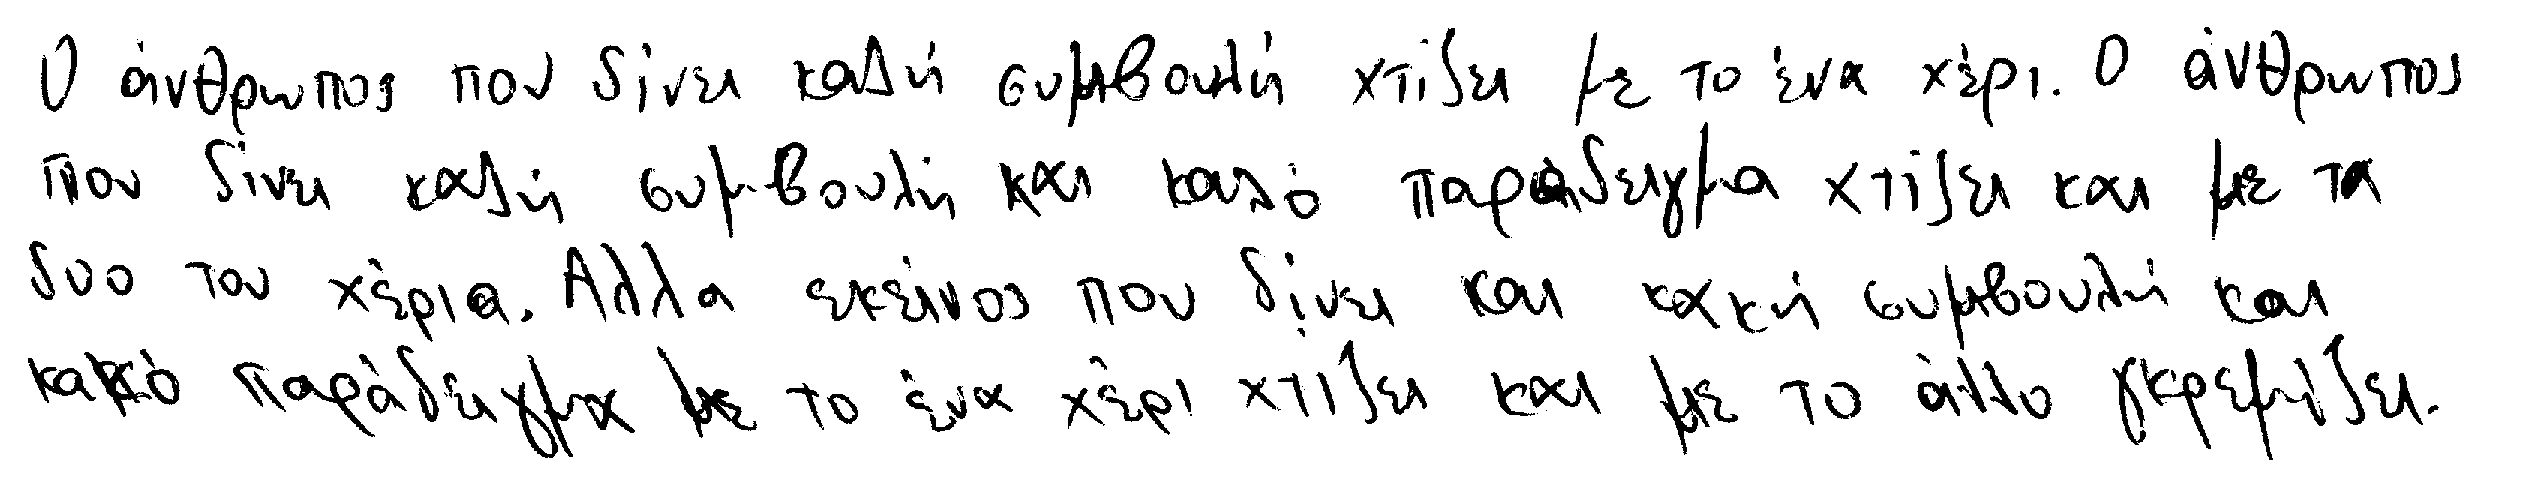 Ο άνθρωπος που δίνει καλή συμβουλή χτίζει με το ένα χέρι. Ο άνθρωπος
που δίνει καλή συμβουλή και καλό παράδειγμα χτίζει και με τα
δυο του χέρια. Αλλα εκείνος που δίνει και κακή συμβουλή και
κακό παράδειγμα με το ένα χέρι χτίζει και με το άλλο γκρεμίζει.